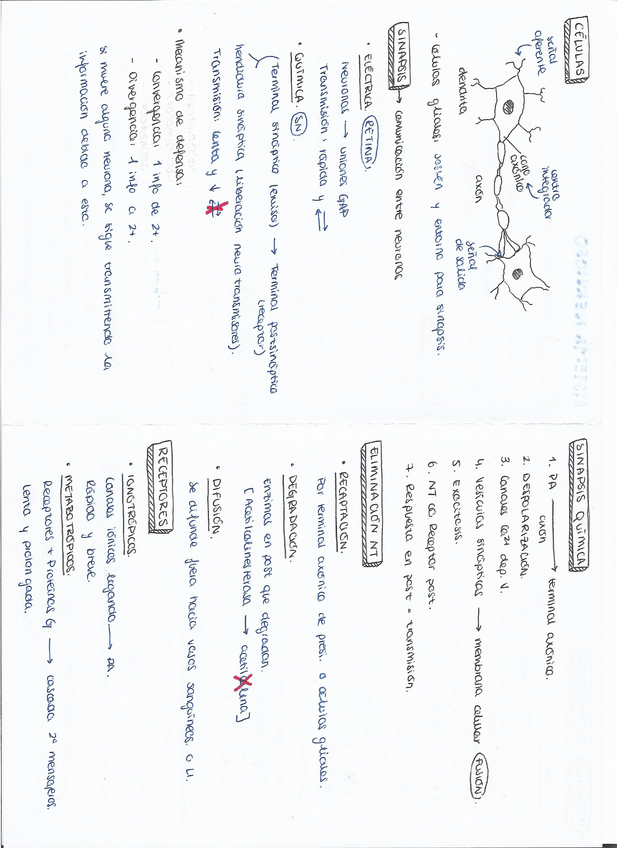 CÉLULAS
señal
aferente
cono
axónico
centro
integrador
dendrita
axón
señal
de salida
- células gliales: sostén y entorno para sinapsis.
SINAPSIS → comunicación entre neuronas
• ELÉCTRICA (RETINA).
Neuronas → uniones GAP
Transmisión: rápida y ⇄
• QUÍMICA. (SN)
Terminal sináptico (emisor) → Terminal postsináptico
(receptor)
hendidura sináptica (liberación neurotransmisores).
Transmisión: lenta y ↓ ⇄
• Mecanismo de defensa:
- convergencia: 1 info de 2+.
- divergencia: 1 info a 2+.
si muere alguna neurona, se sigue transmitiendo la
información debido a eso.
SINAPSIS QUÍMICA
1. PA → terminal axónico.
axón
2. DESPOLARIZACIÓN.
3. Canales Ca2+ dep. V.
4. Vesículas sinápticas → membrana celular (FUSIÓN).
5. Exocitosis.
6. NT Receptor post.
7. Respuesta en post = transmisión.
ELIMINACIÓN NT
• RECAPTACIÓN.
Por terminal axónico de presi. o células gliales.
• DEGRADACIÓN.
Enzimas en post que degradan.
[Acetilcolinesterasa → acetilcolina]
• DIFUSIÓN.
se difunde fuera hacia vasos sanguíneos. o LI.
RECEPTORES
• IONOTRÓPICOS.
Canales iónicos ligando → PA.
Rápida y breve.
• METABOTRÓPICOS.
Receptores + Proteínas G → cascada 2º mensajeros.
Lenta y prolongada.